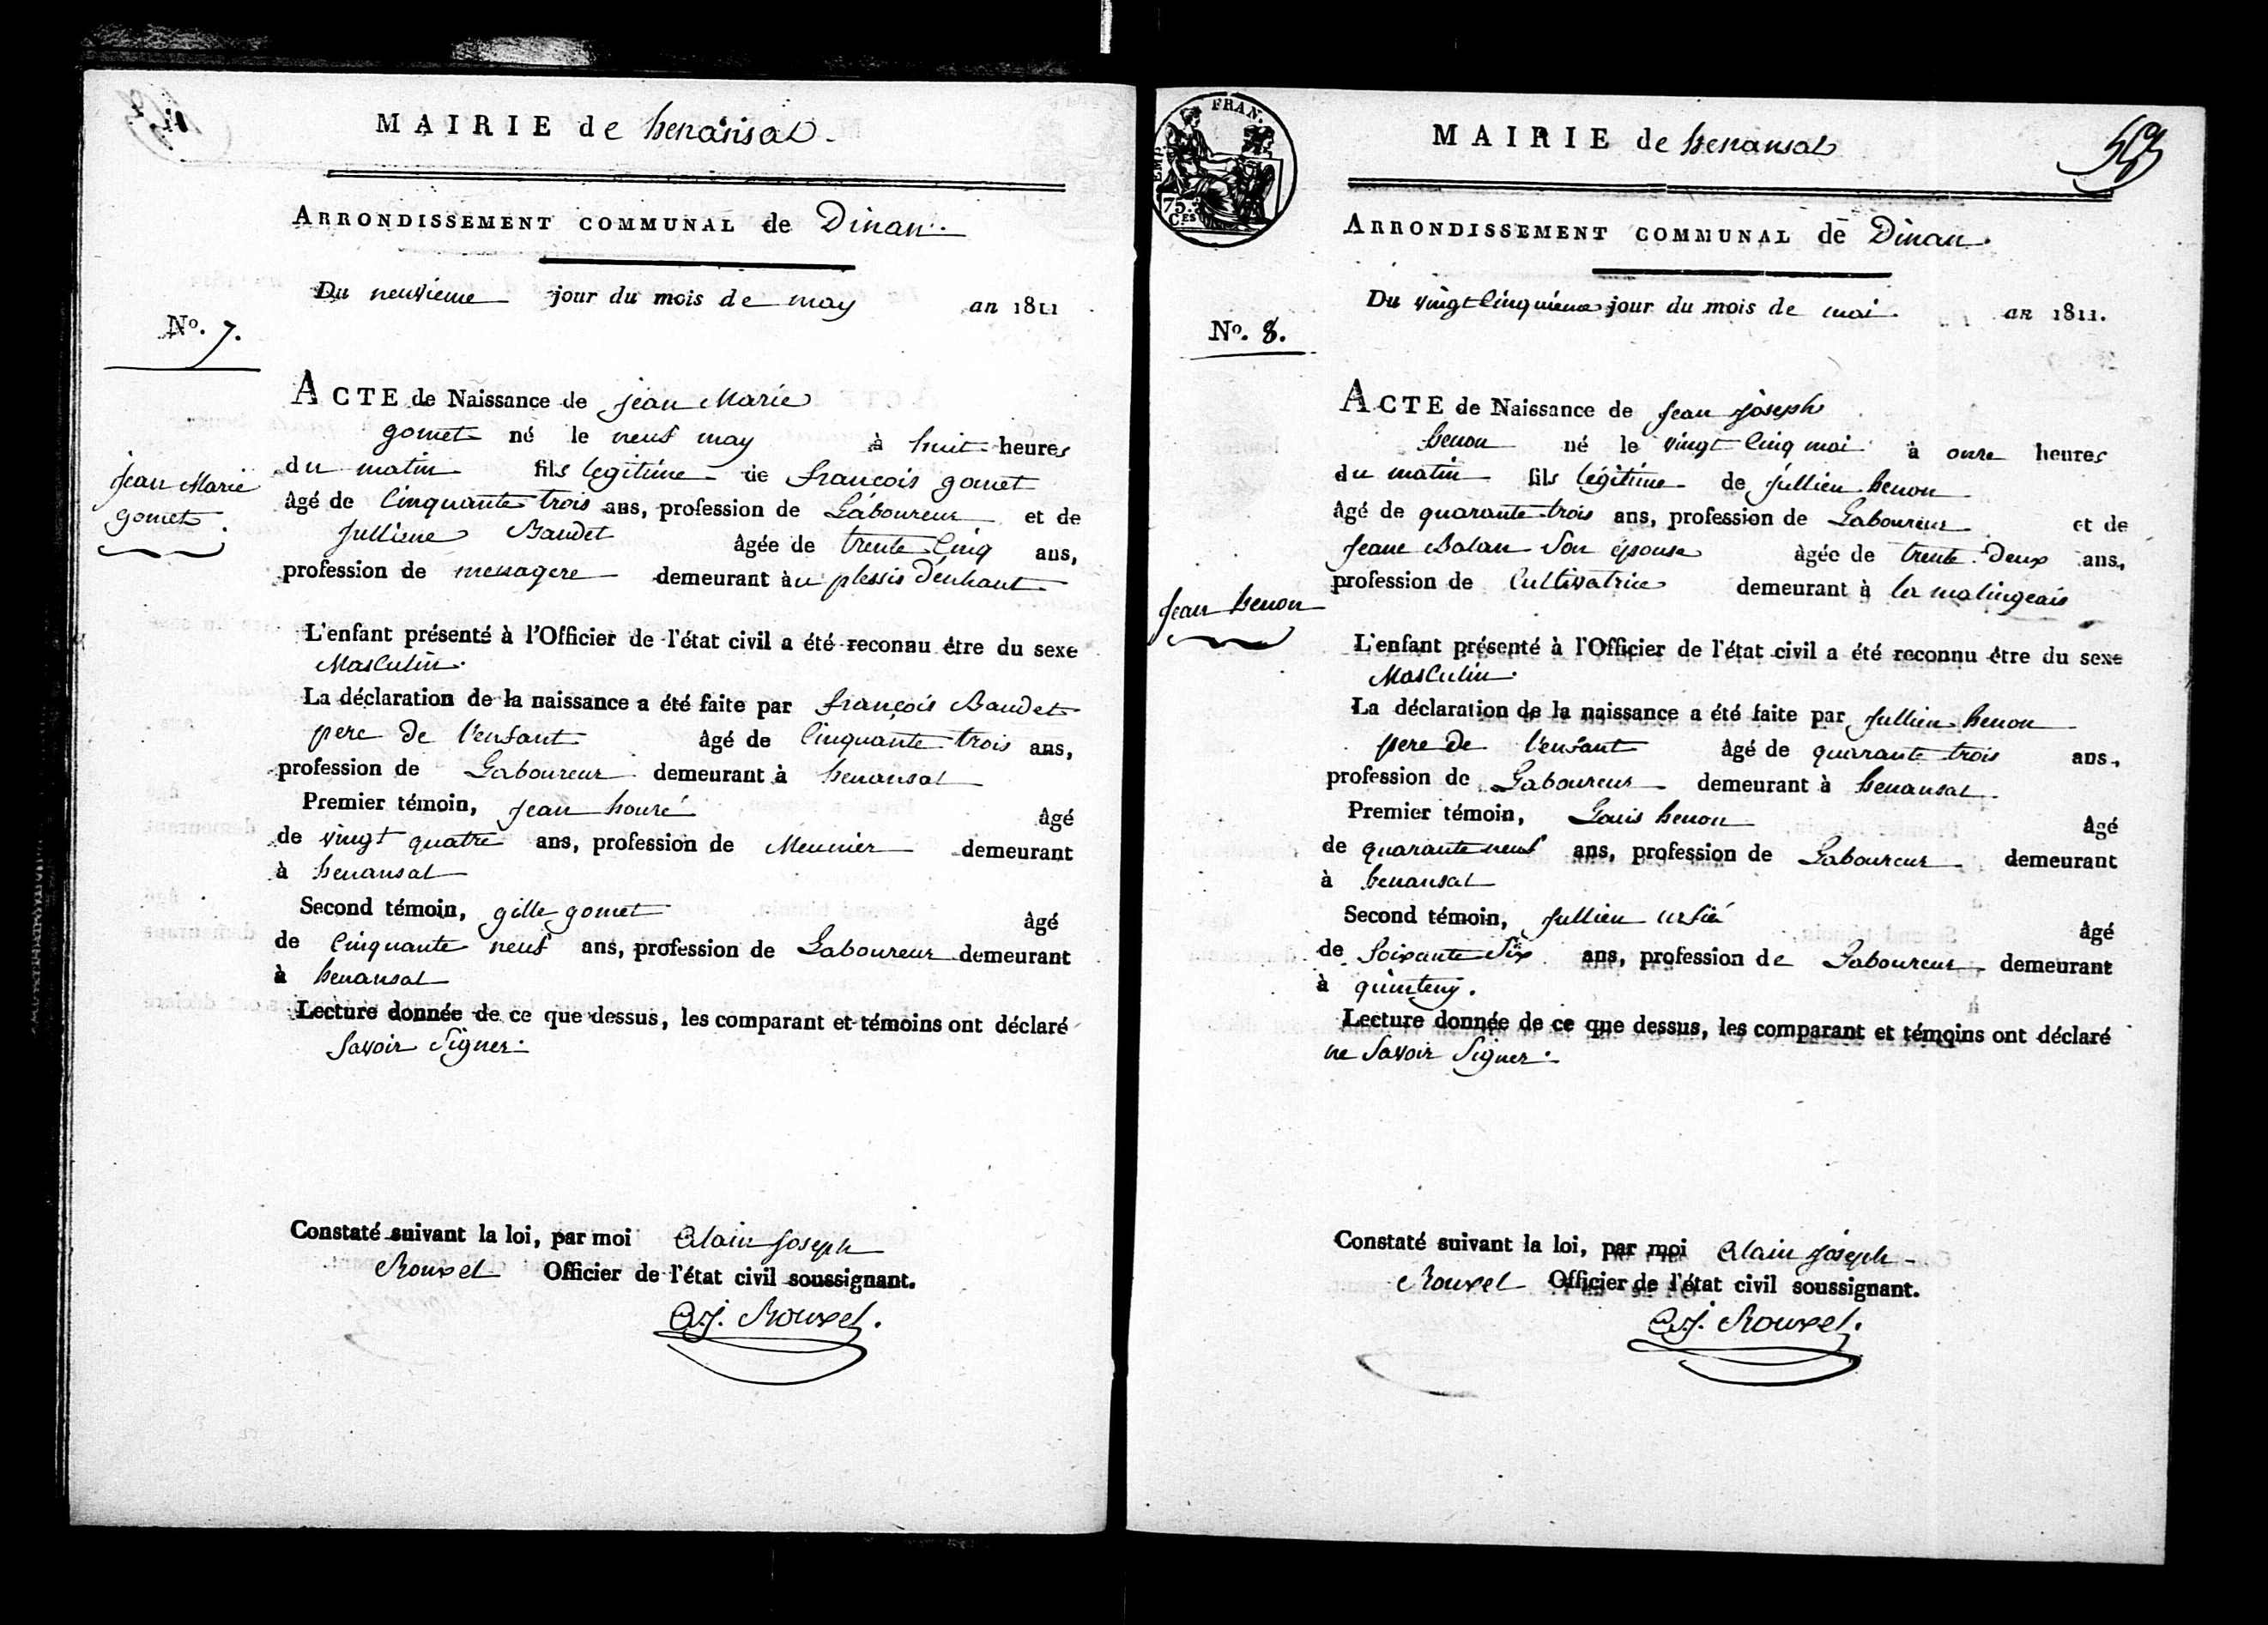 MAIRIE de henansal
ARRONDISSEMENT COMMUNAL de Dinan.
Du neuvieme jour du mois de may an 1811
No. 7.
ACTE de Naissance de jean Marie
gomet né le neuf may à huit heures
du matin fils legitime de francois gomet
jean Marie
gomet.
âgé de Cinquante trois ans, profession de Laboureur et de
jullienne Baudet âgée de trente Cinq ans,
profession de menagere demeurant àu plessis d'enhaut
L'enfant présenté à l'Officier de l'état civil a été reconnu être du sexe
Masculin.
La déclaration de la naissance a été faite par françois Baudet
pere de l'enfant âgé de Cinquante trois ans,
profession de Laboureur demeurant à henansal
Premier témoin, jean houré âgé
de vingt quatre ans, profession de Meunier demeurant
à henansal
Second témoin, gille gomet âgé
de Cinquante neuf ans, profession de Laboureur demeurant
à henansal
Lecture donnée de ce que dessus, les comparant et témoins ont déclaré
Savoir Signer.
Constaté suivant la loi, par moi Alain joseph
Rouxel Officier de l'état civil soussignant.
A.j. Rouxel.
EMP. FRAN.
75.
CES
MAIRIE de henansal
ARRONDISSEMENT COMMUNAL de Dinan.
Du vingt Cinquieme jour du mois de mai an 1811.
No. 8.
ACTE de Naissance de jean joseph
henon né le vingt Cinq mai à onze heures
du matin fils légitime de jullien henon
âgé de quarante trois ans, profession de Laboureur et de
jeane Balan Son épouse âgée de trente Deux ans,
profession de Cultivatrice demeurant à la malingeais
jean henon
L'enfant présenté à l'Officier de l'état civil a été reconnu être du sexe
Masculin.
La déclaration de la naissance a été faite par jullien henon
pere de l'enfant âgé de quarante trois ans,
profession de Laboureur demeurant à henansal
Premier témoin, Louis henon âgé
de quarante neuf ans, profession de Laboureur demeurant
à henansal
Second témoin, jullien âgé
de Soixante Six ans, profession de Laboureur demeurant
à quinteny.
Lecture donnée de ce que dessus, les comparant et témoins ont déclaré
ne Savoir Signer.
Constaté suivant la loi, par moi Alain joseph
Rouxel Officier de l'état civil soussignant.
A.j. Rouxel.